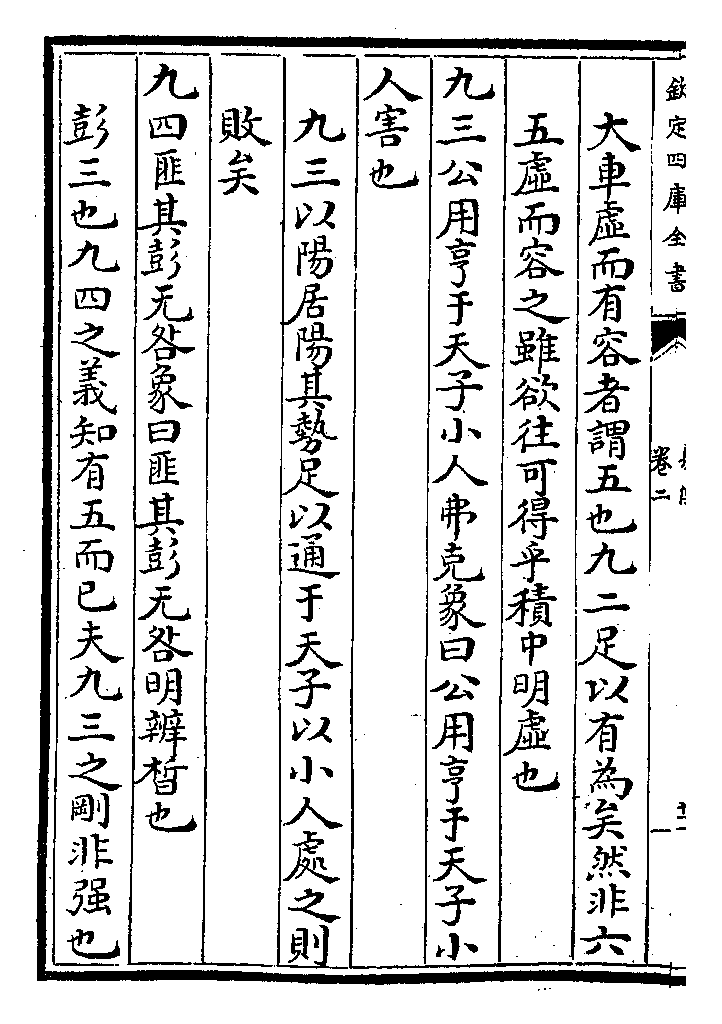 欽定四庫全書
卷二
大車虛而有容者謂五也九二足以有為矣然非六
五虛而容之雖欲往可得乎積中明虛也
九三公用亨于天子小人弗克象曰公用亨于天子小
人害也
九三以陽居陽其勢足以通于天子以小人處之則
敗矣
九四匪其彭无咎象曰匪其彭无咎明辨晢也
彭三也九四之義知有五而已夫九三之剛非强也